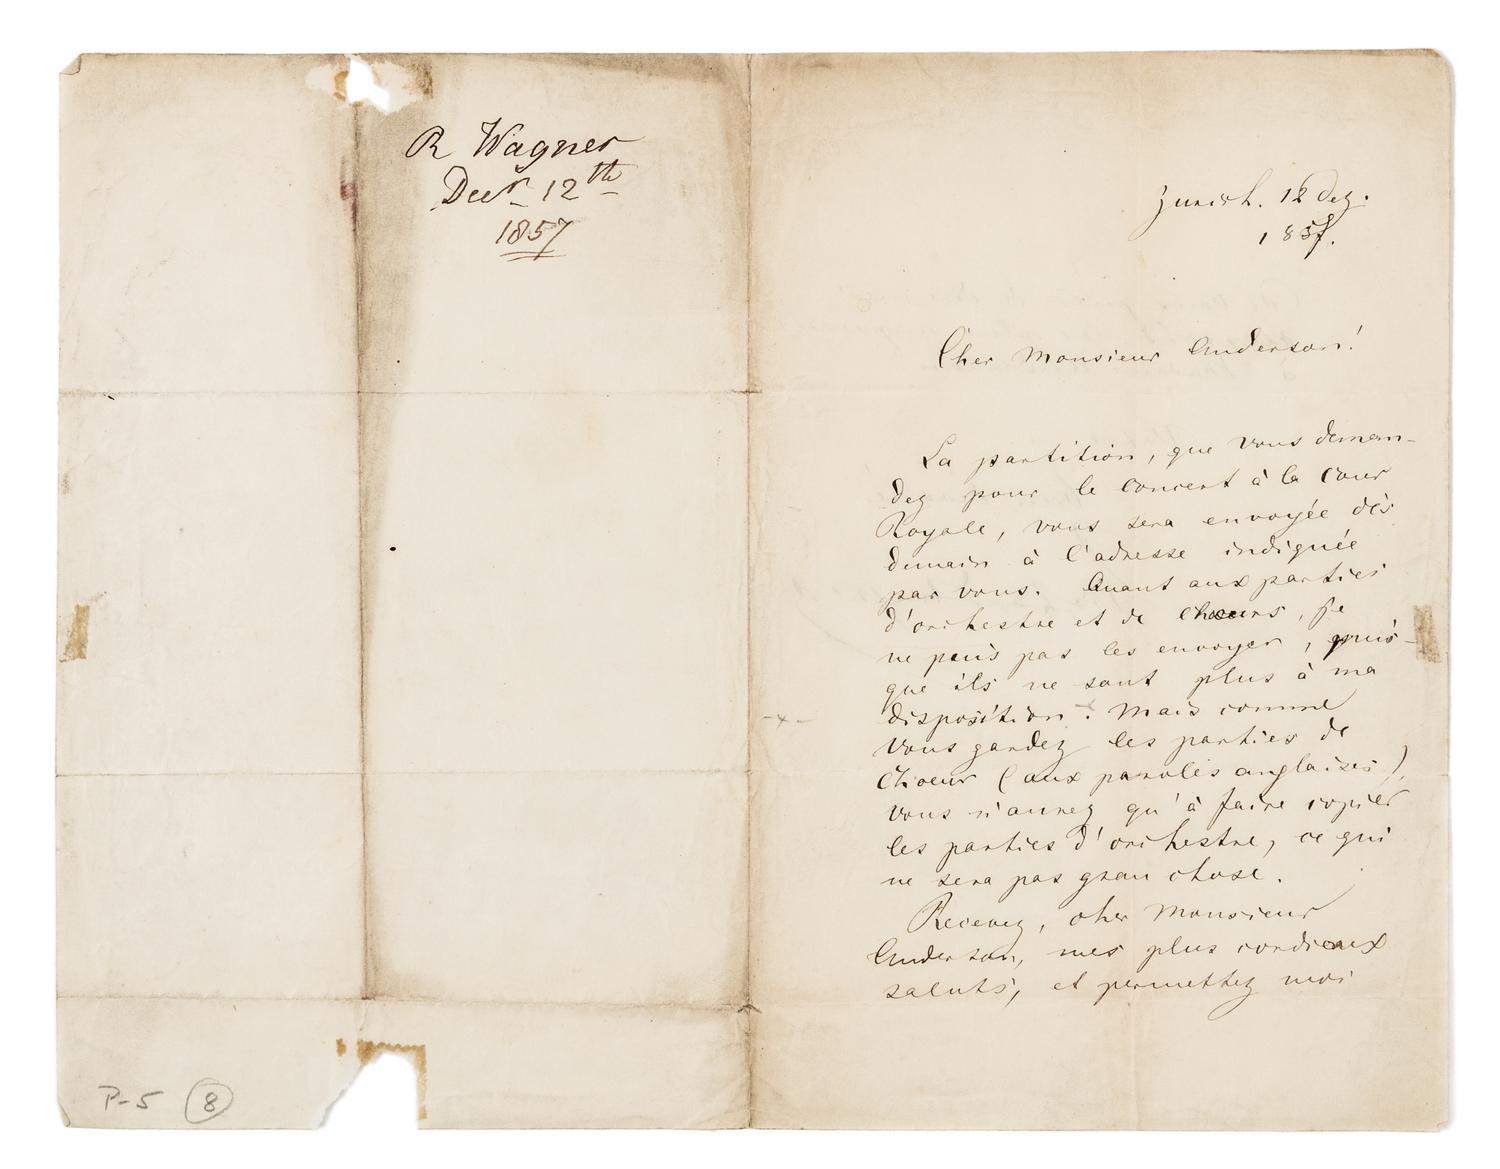 R Wagner
Decr. 12th
1857
P-5 8
Zurich. 12 Dez.
1857.
Cher Monsieur Anderson!
La partition, que vous deman-
dez pour le concert à la cour
Royale, vous sera envoyée dès
demain à l'adresse indiquée
par vous. Quant aux parties
d'orchestre et de choeurs, je
ne peus pas les envoyer, puis-
que ils ne sont plus à ma
disposition. Mais comme
vous gardez les parties de
choeur (aux paroles anglaises),
vous n'aurez qu'à faire copier
les parties d'orchestre, ce qui
ne sera pas gran chose.
Recevez, cher Monsieur
Anderson, mes plus cordieaux
saluts, et permettez moi